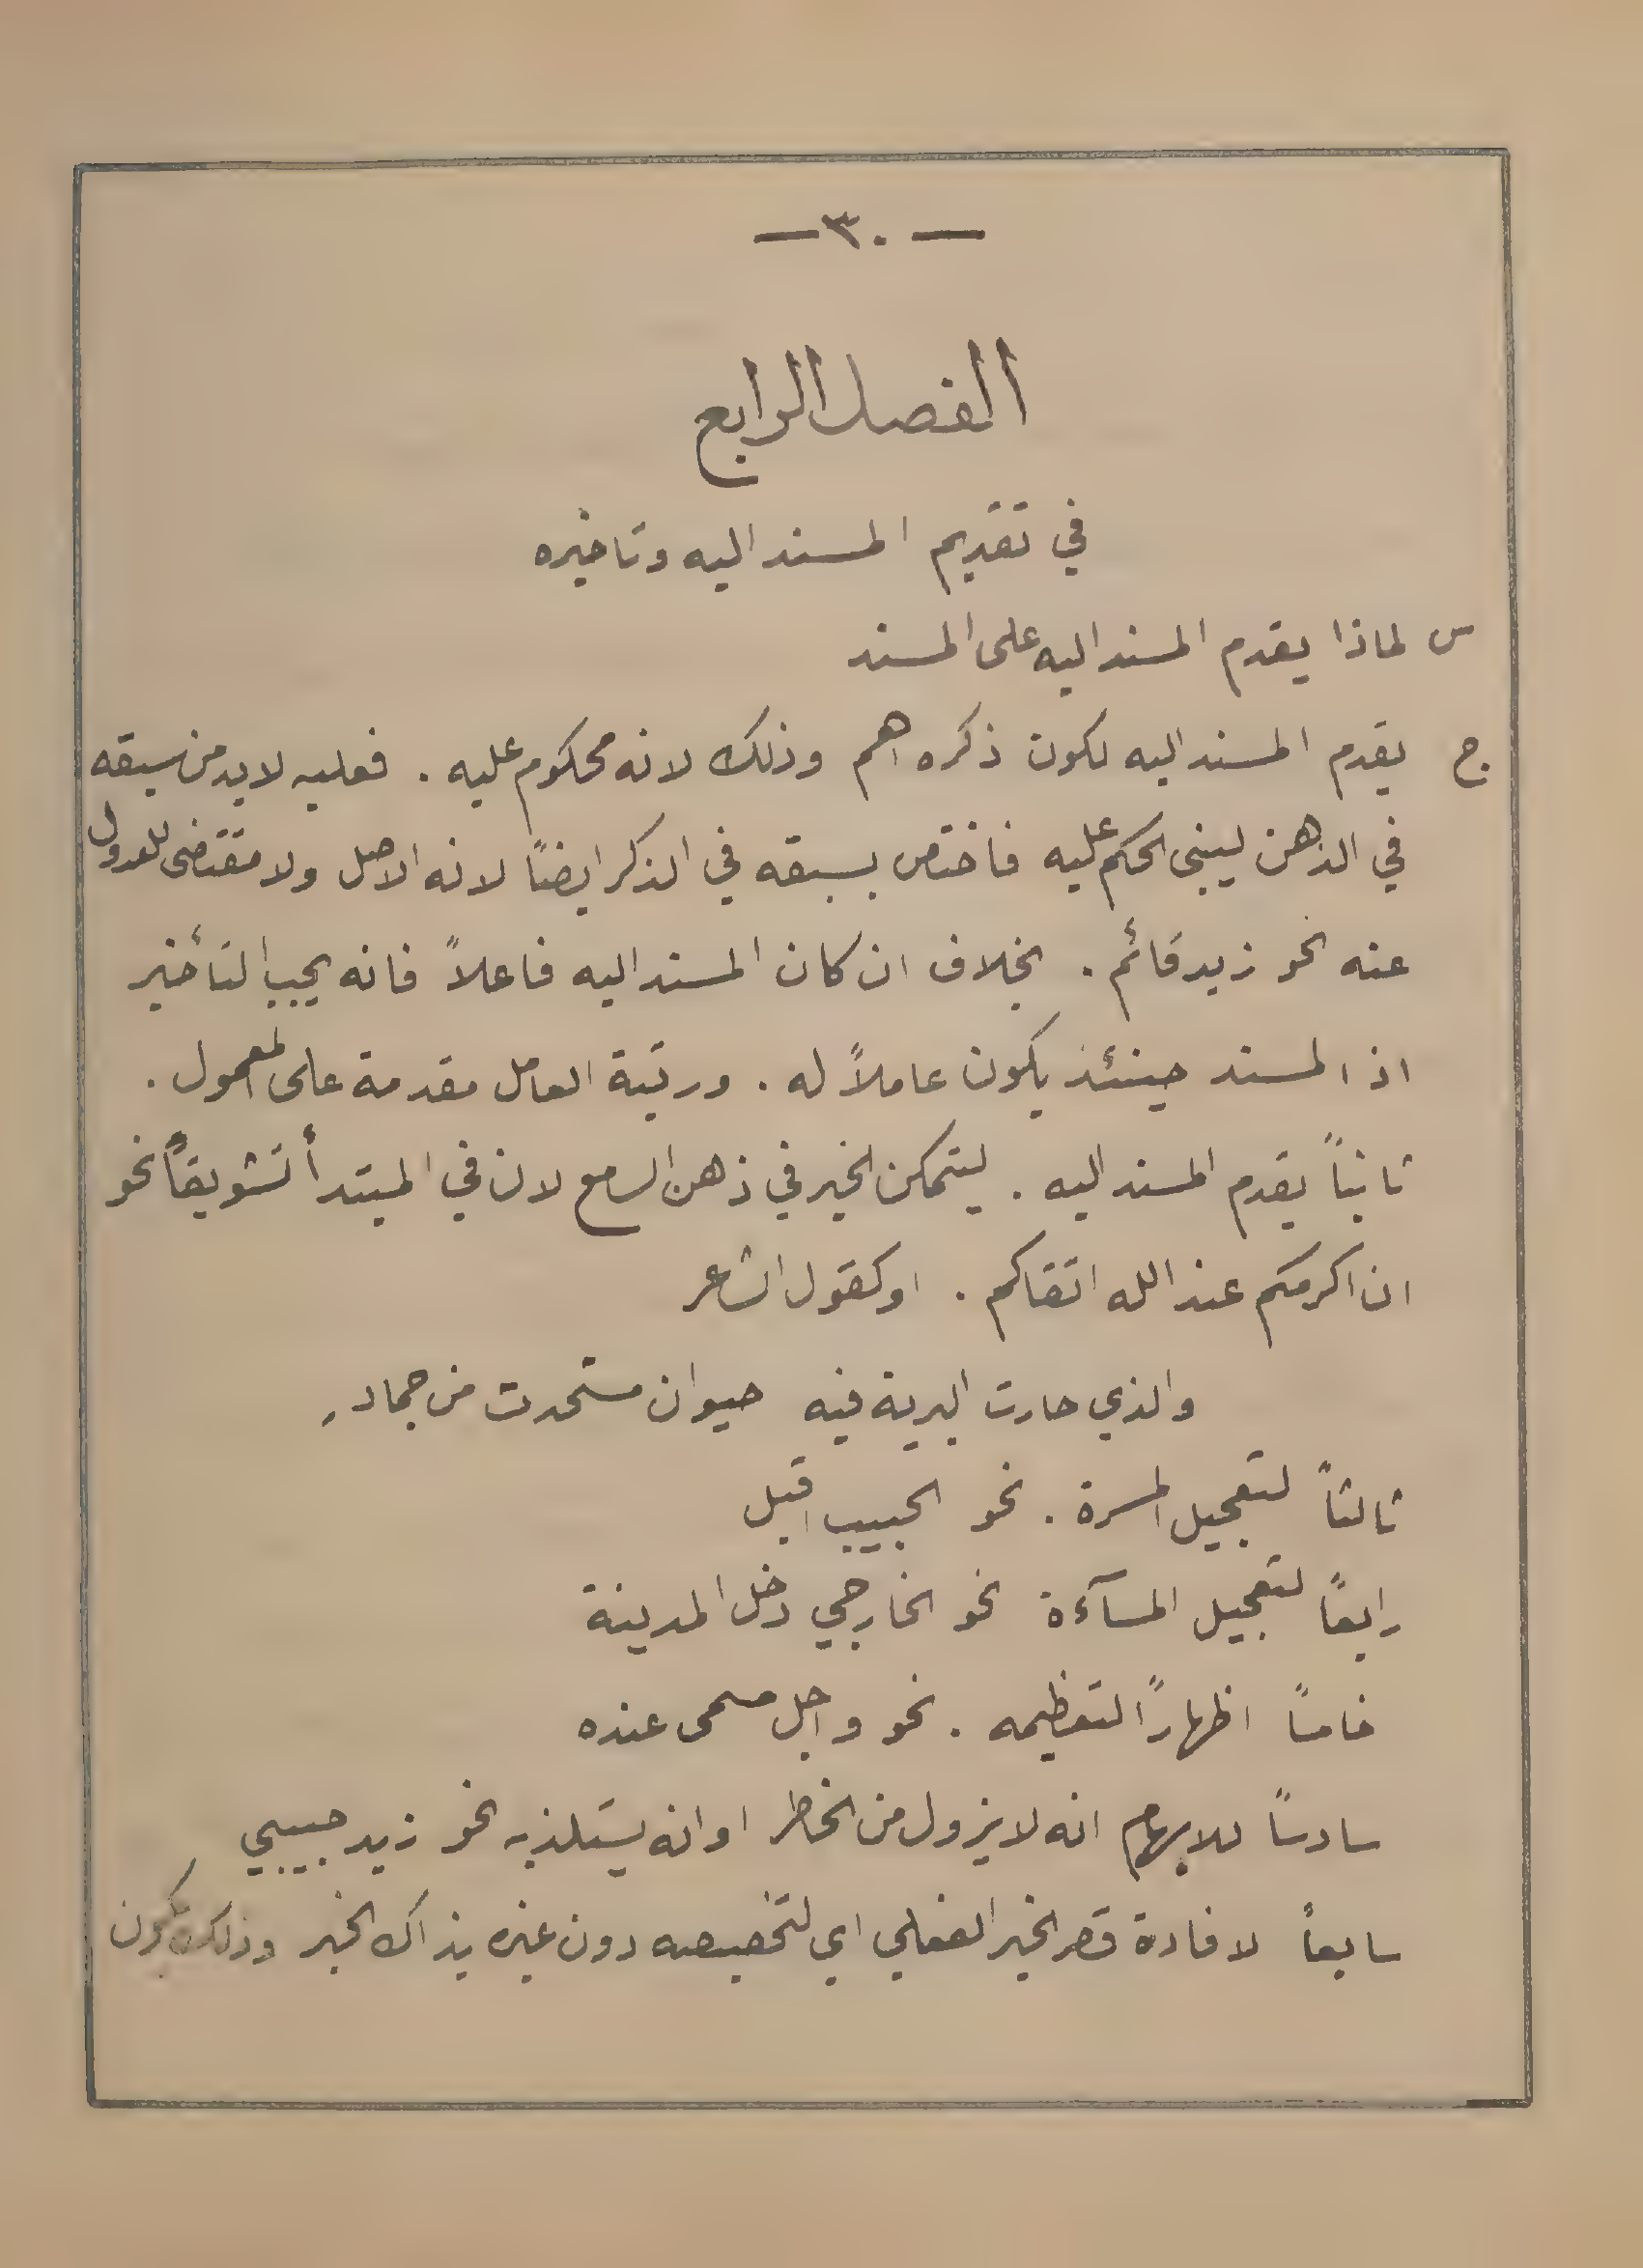 — ٣٠ —
الفصل الرابع
في تقديم المسند اليه وتاخيره
س لماذا يقدم المسند اليه على المسند
ج يقدم المسند اليه لكون ذكره اهم وذلك لانه محكوم عليه . فعليه لابد من سبقه
في الذهن ليبنى الحكم عليه فاختص بسبقه في الذكر ايضًا لانه الاصل ولا مقتضى للعدول
عنه نحو زيد قائم . بخلاف ان كان المسند اليه فاعلاً فانه يجب التأخير
اذ المسند حينئذ يكون عاملاً له . ورتبة العامل مقدمة على المعمول .
ثانياً يقدم المسند اليه . ليتمكن الخبر في ذهن السامع لان في المبتدأ تشويقاً نحو
ان اكرمكم عند الله اتقاكم . او كقول الشاعر
والذي حارت البرية فيه حيوان مستحدث من جمادِ
ثالثاً لتعجيل المسرة . نحو الحبيب اقبل
رابعاً لتعجيل المسآءة نحو الخارجي دخل المدينة
خامسًا اظهارًا لتعظيمه . نحو واجل مسمى عنده
سادسًا للايهام انه لا يزول من الخاطر او انه يستلذ به نحو زيد حبيبي
سابعاً لافادة قصر الخبر الفعلي اي لتخصيصه دون غيره بذاك الخبر وذلك